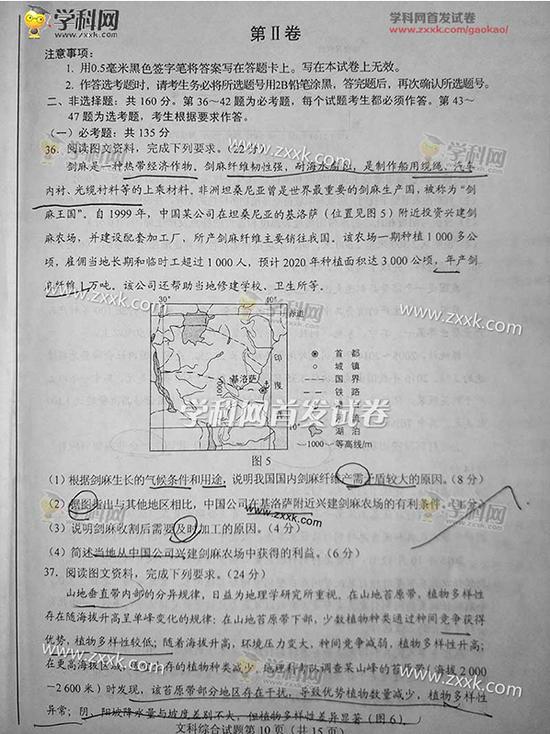 学科网
www.zxxk.com
学科网首发试卷
www.zxxk.com/gaokao/
第Ⅱ卷
注意事项:
1. 用0.5毫米黑色签字笔将答案写在答题卡上。写在本试卷上无效。
2. 作答选考题时,请考生务必将所选题号用2B铅笔涂黑,答完题后,再次确认所选题号。
二、非选择题:共 160 分。第 36~42 题为必考题,每个试题考生都必须作答。第 43~
47 题为选考题,考生根据要求作答。
(一)必考题:共 135 分
36. 阅读图文资料,完成下列要求。(22 分)
剑麻是一种热带经济作物。剑麻纤维韧性强,耐海水腐蚀,是制作船用缆绳、汽车
内衬、光缆衬料等的上乘材料。非洲坦桑尼亚曾是世界最重要的剑麻生产国,被称为“剑
麻王国”。自 1999 年,中国某公司在坦桑尼亚的基洛萨(位置见图 5)附近投资兴建剑
麻农场,并建设配套加工厂,所产剑麻纤维主要销往我国。该农场一期种植 1 000 多公
顷,雇佣当地长期和临时工超过 1 000 人,预计 2020 年种植面积达 3 000 公顷,年产剑
麻纤维 1 万吨。该公司还帮助当地修建学校、卫生所等。
30° 40°
赤道
印
度
基洛萨
1000
10°
首都
城镇
国界
铁路
河流
湖泊
~1000~ 等高线/m
学科网首发试卷
图 5
(1)根据剑麻生长的气候条件和用途,说明我国国内剑麻纤维产需矛盾较大的原因。(8 分)
(2)据图指出与其他地区相比,中国公司在基洛萨附近兴建剑麻农场的有利条件。(4 分)
(3)说明剑麻收割后需要及时加工的原因。(4 分)
(4)简述当地从中国公司兴建剑麻农场中获得的利益。(6 分)
37. 阅读图文资料,完成下列要求。(24 分)
山地垂直带内部的分异规律,日益为地理学研究所重视。在山地首原带,植物多样性
存在随海拔升高呈单峰变化的规律:在山地首原带下部,少数植物种类通过种间竞争获得
优势,植物多样性较低;随着海拔升高,环境压力变大,种间竞争减弱,植物多样性升高;
在更高海拔区域,能够生存的植物种类减少。地理科考队调查某山峰的首原带(海拔 2 000
~2 600 米)时发现,该首原带部分地区存在干扰,导致优势植物数量减少,植物多样性
异常;阴、阳坡降水量与坡度差别不大,但植物多样性差异显著(图 6)。
文科综合试题第 10 页(共 15 页)